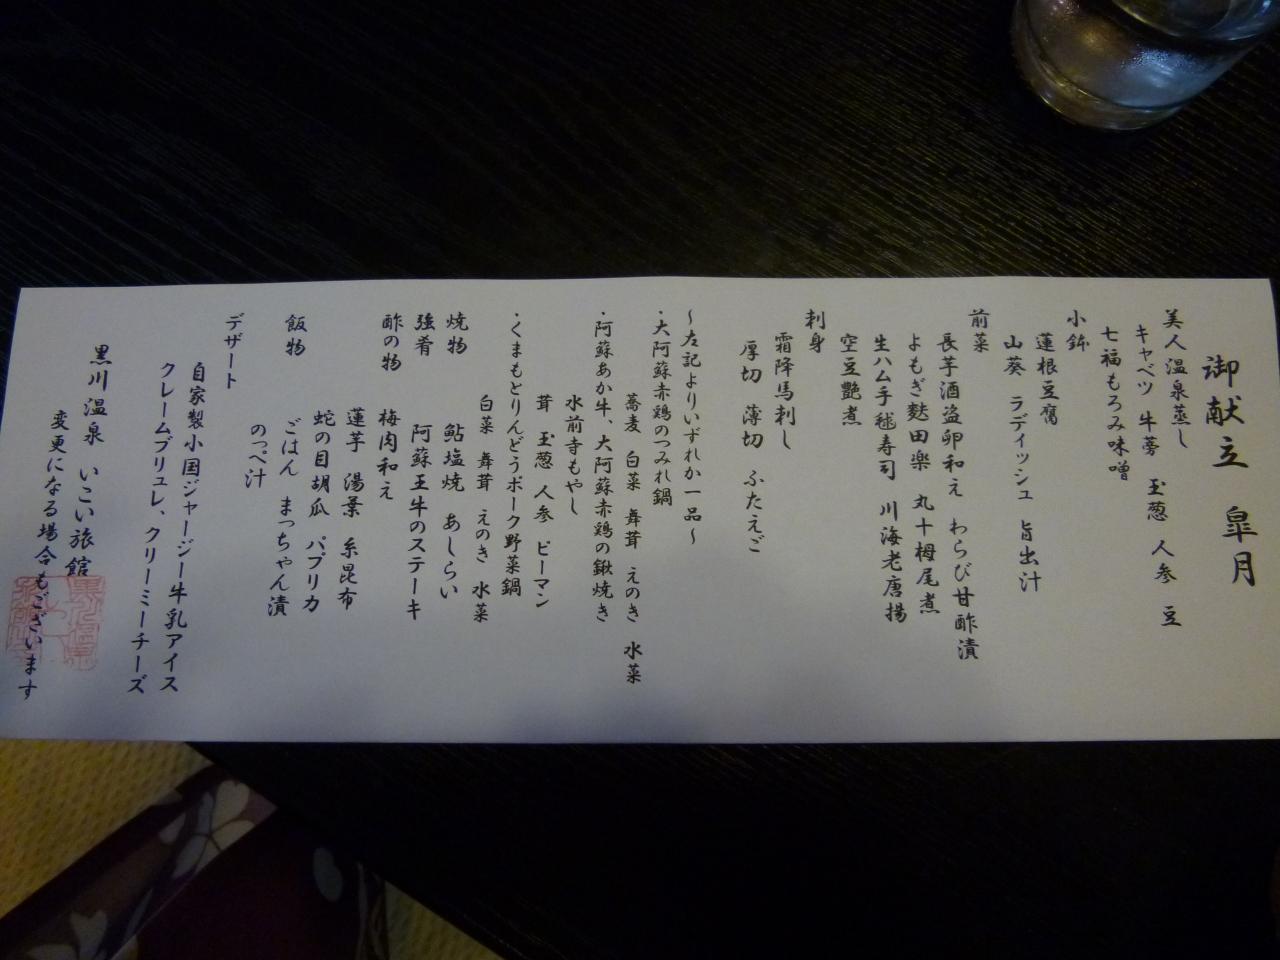 御献立 皐月
美人温泉蒸し
キャベツ 牛蒡 玉葱 人参 豆
七福もろみ味噌
小鉢
蓮根豆腐
山葵 ラディッシュ 旨出汁
前菜
長芋酒盗卵和え わらび甘酢漬
よもぎ麩田楽 丸十栂尾煮
生ハム手毬寿司 川海老唐揚
空豆艶煮
刺身
霜降馬刺し
厚切 薄切 ふたえご
〜左記よりいずれか一品〜
・大阿蘇赤鶏のつみれ鍋
蕎麦 白菜 舞茸 えのき 水菜
・阿蘇あか牛、大阿蘇赤鶏の鍬焼き
水前寺もやし
茸 玉葱 人参 ピーマン
・くまもとりんどうポーク野菜鍋
白菜 舞茸 えのき 水菜
焼物 鮎塩焼 あしらい
強肴 阿蘇王牛のステーキ
酢の物 梅肉和え
蓮芋 湯葉 糸昆布
蛇の目胡瓜 パプリカ
飯物 ごはん まっちゃん漬
のっぺ汁
デザート
自家製小国ジャージー牛乳アイス
クレームブリュレ、クリーミーチーズ
黒川温泉 いこい旅館
変更になる場合もございます